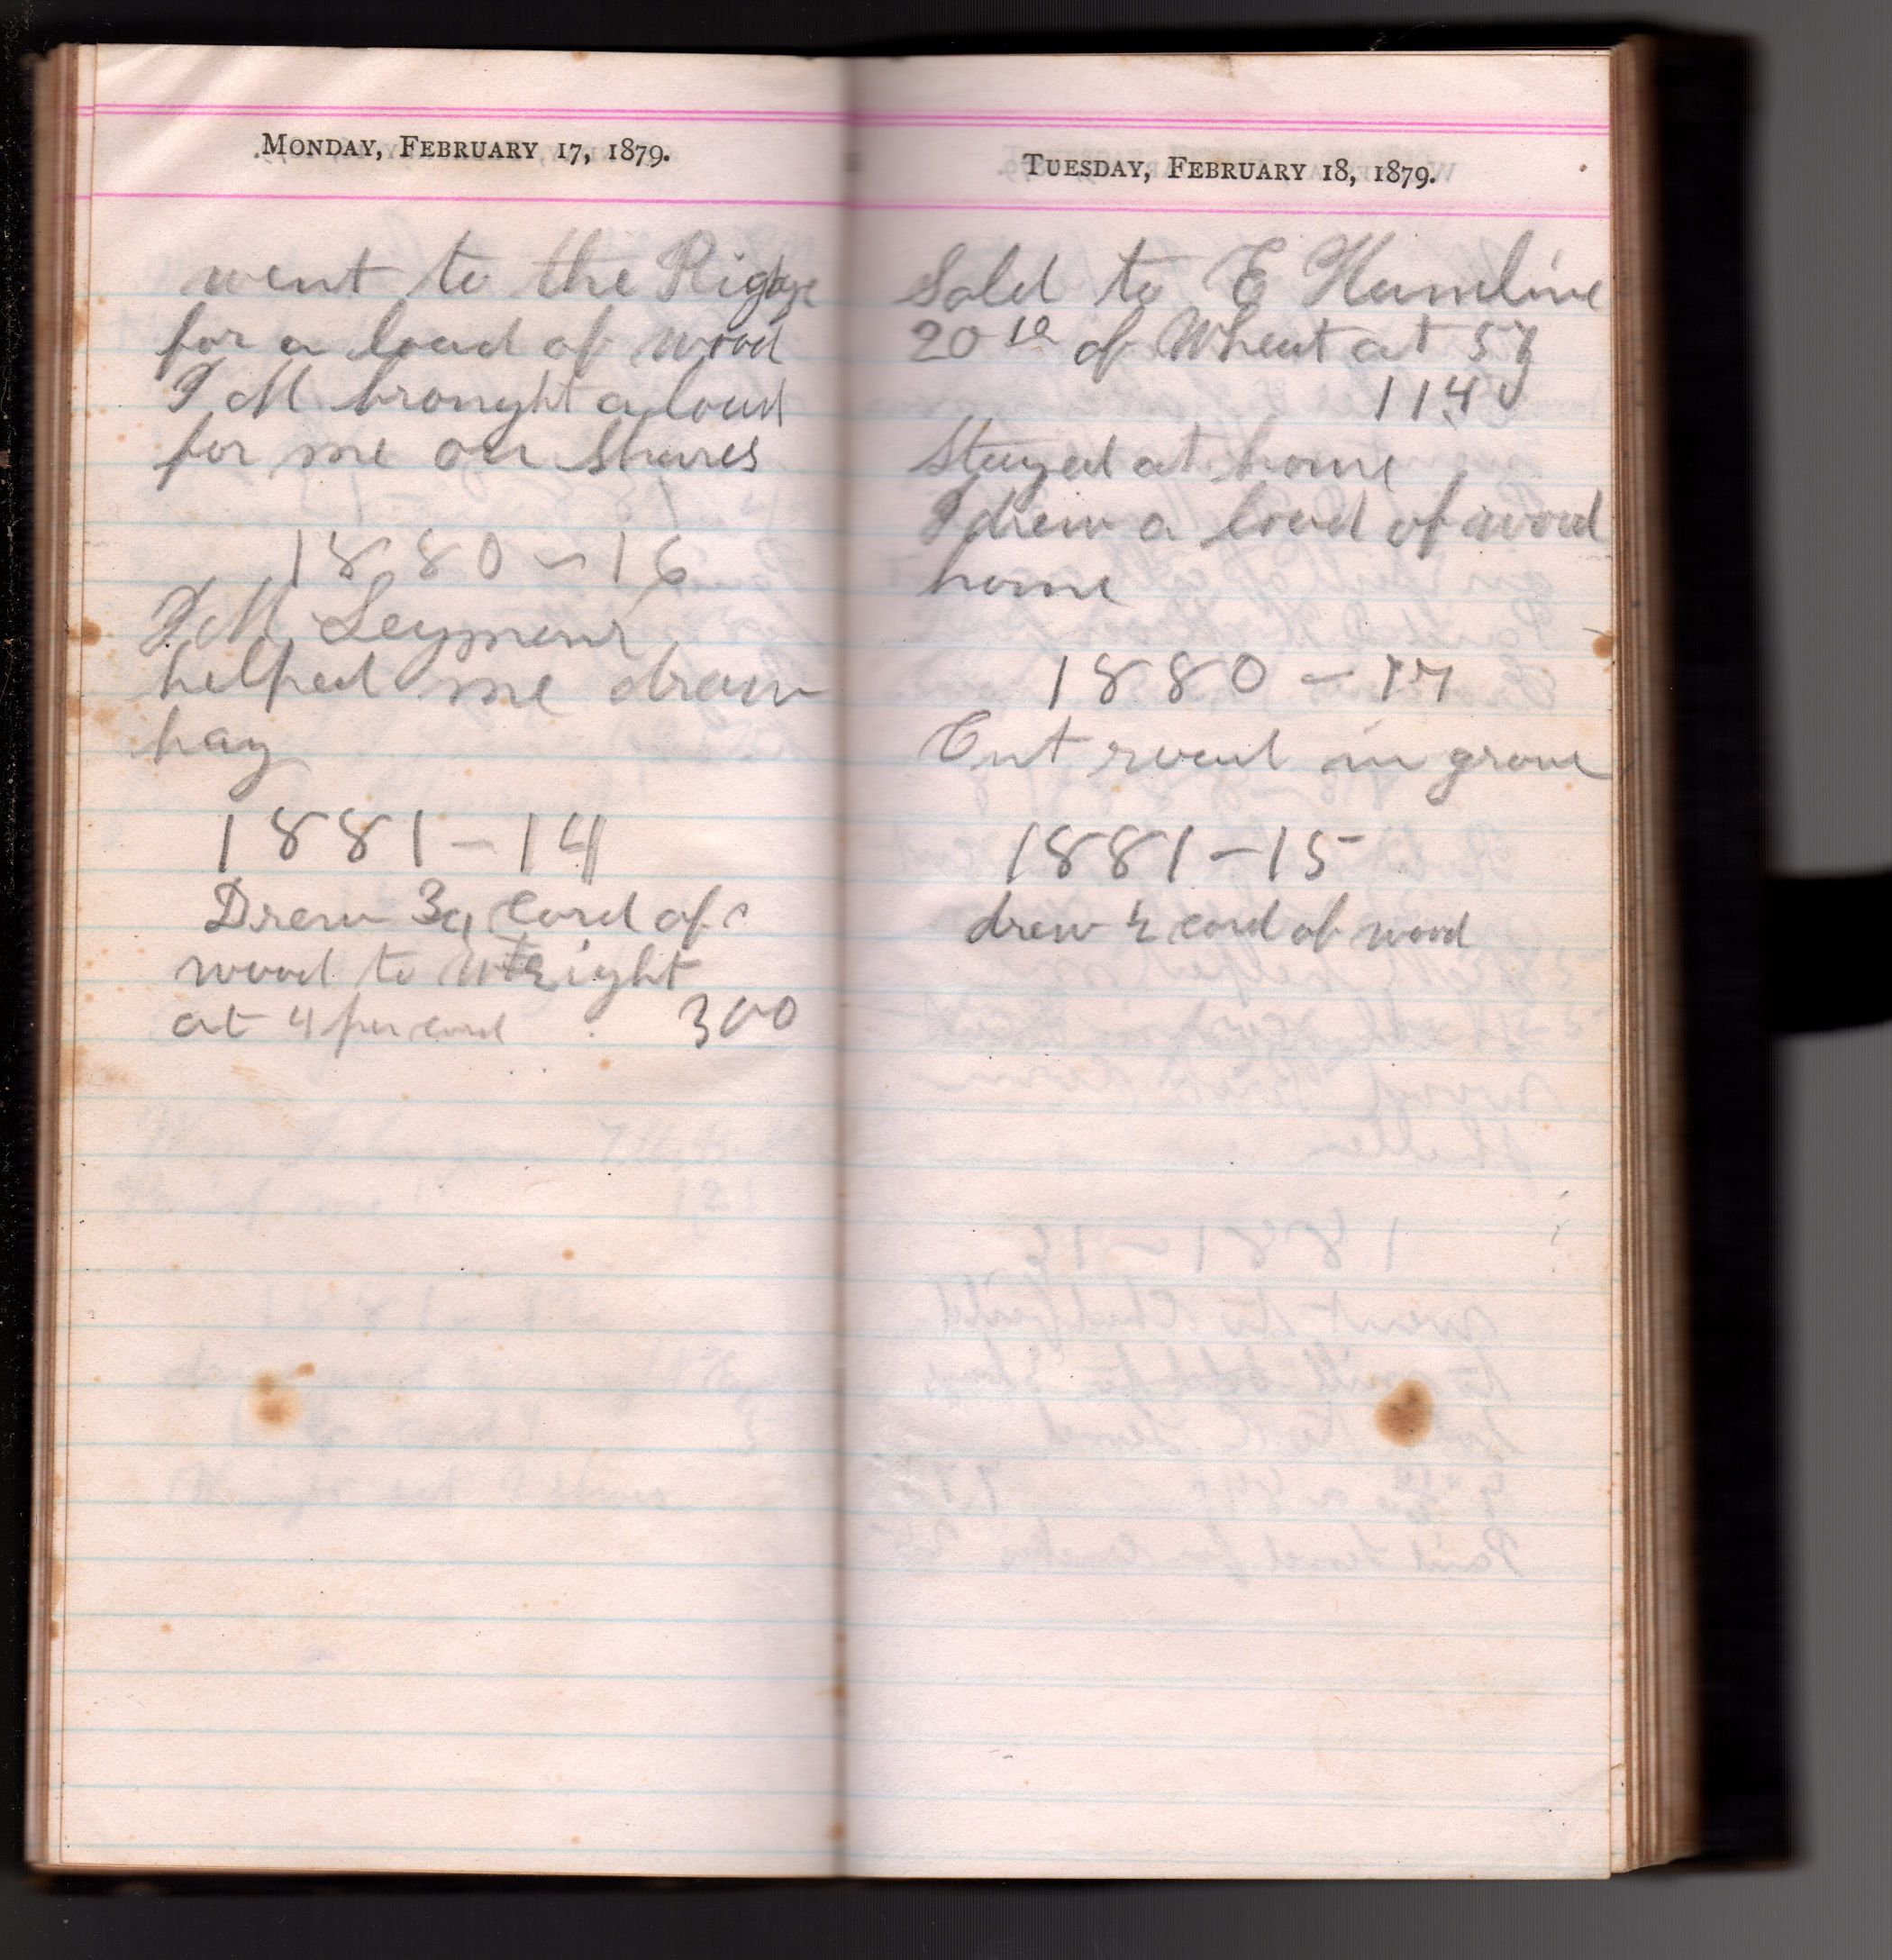 MONDAY, FEBRUARY 17, 1879.
went to the Ridge
for a load of wood
I M brought a load
for me on Shares
1880 - 16
I. M. Seymour
helped me draw
hay
1881 - 14
Drew 3/4 Cord of
wood to Wright
at 4 per cord 300
TUESDAY, FEBRUARY 18, 1879.
Sold to E Hamline
20 of Wheat at 57
1140
Stayed at home
I drew a load of wood
home
1880 - 17
Cut wood in grove
1881 - 15
drew 1/2 cord of wood